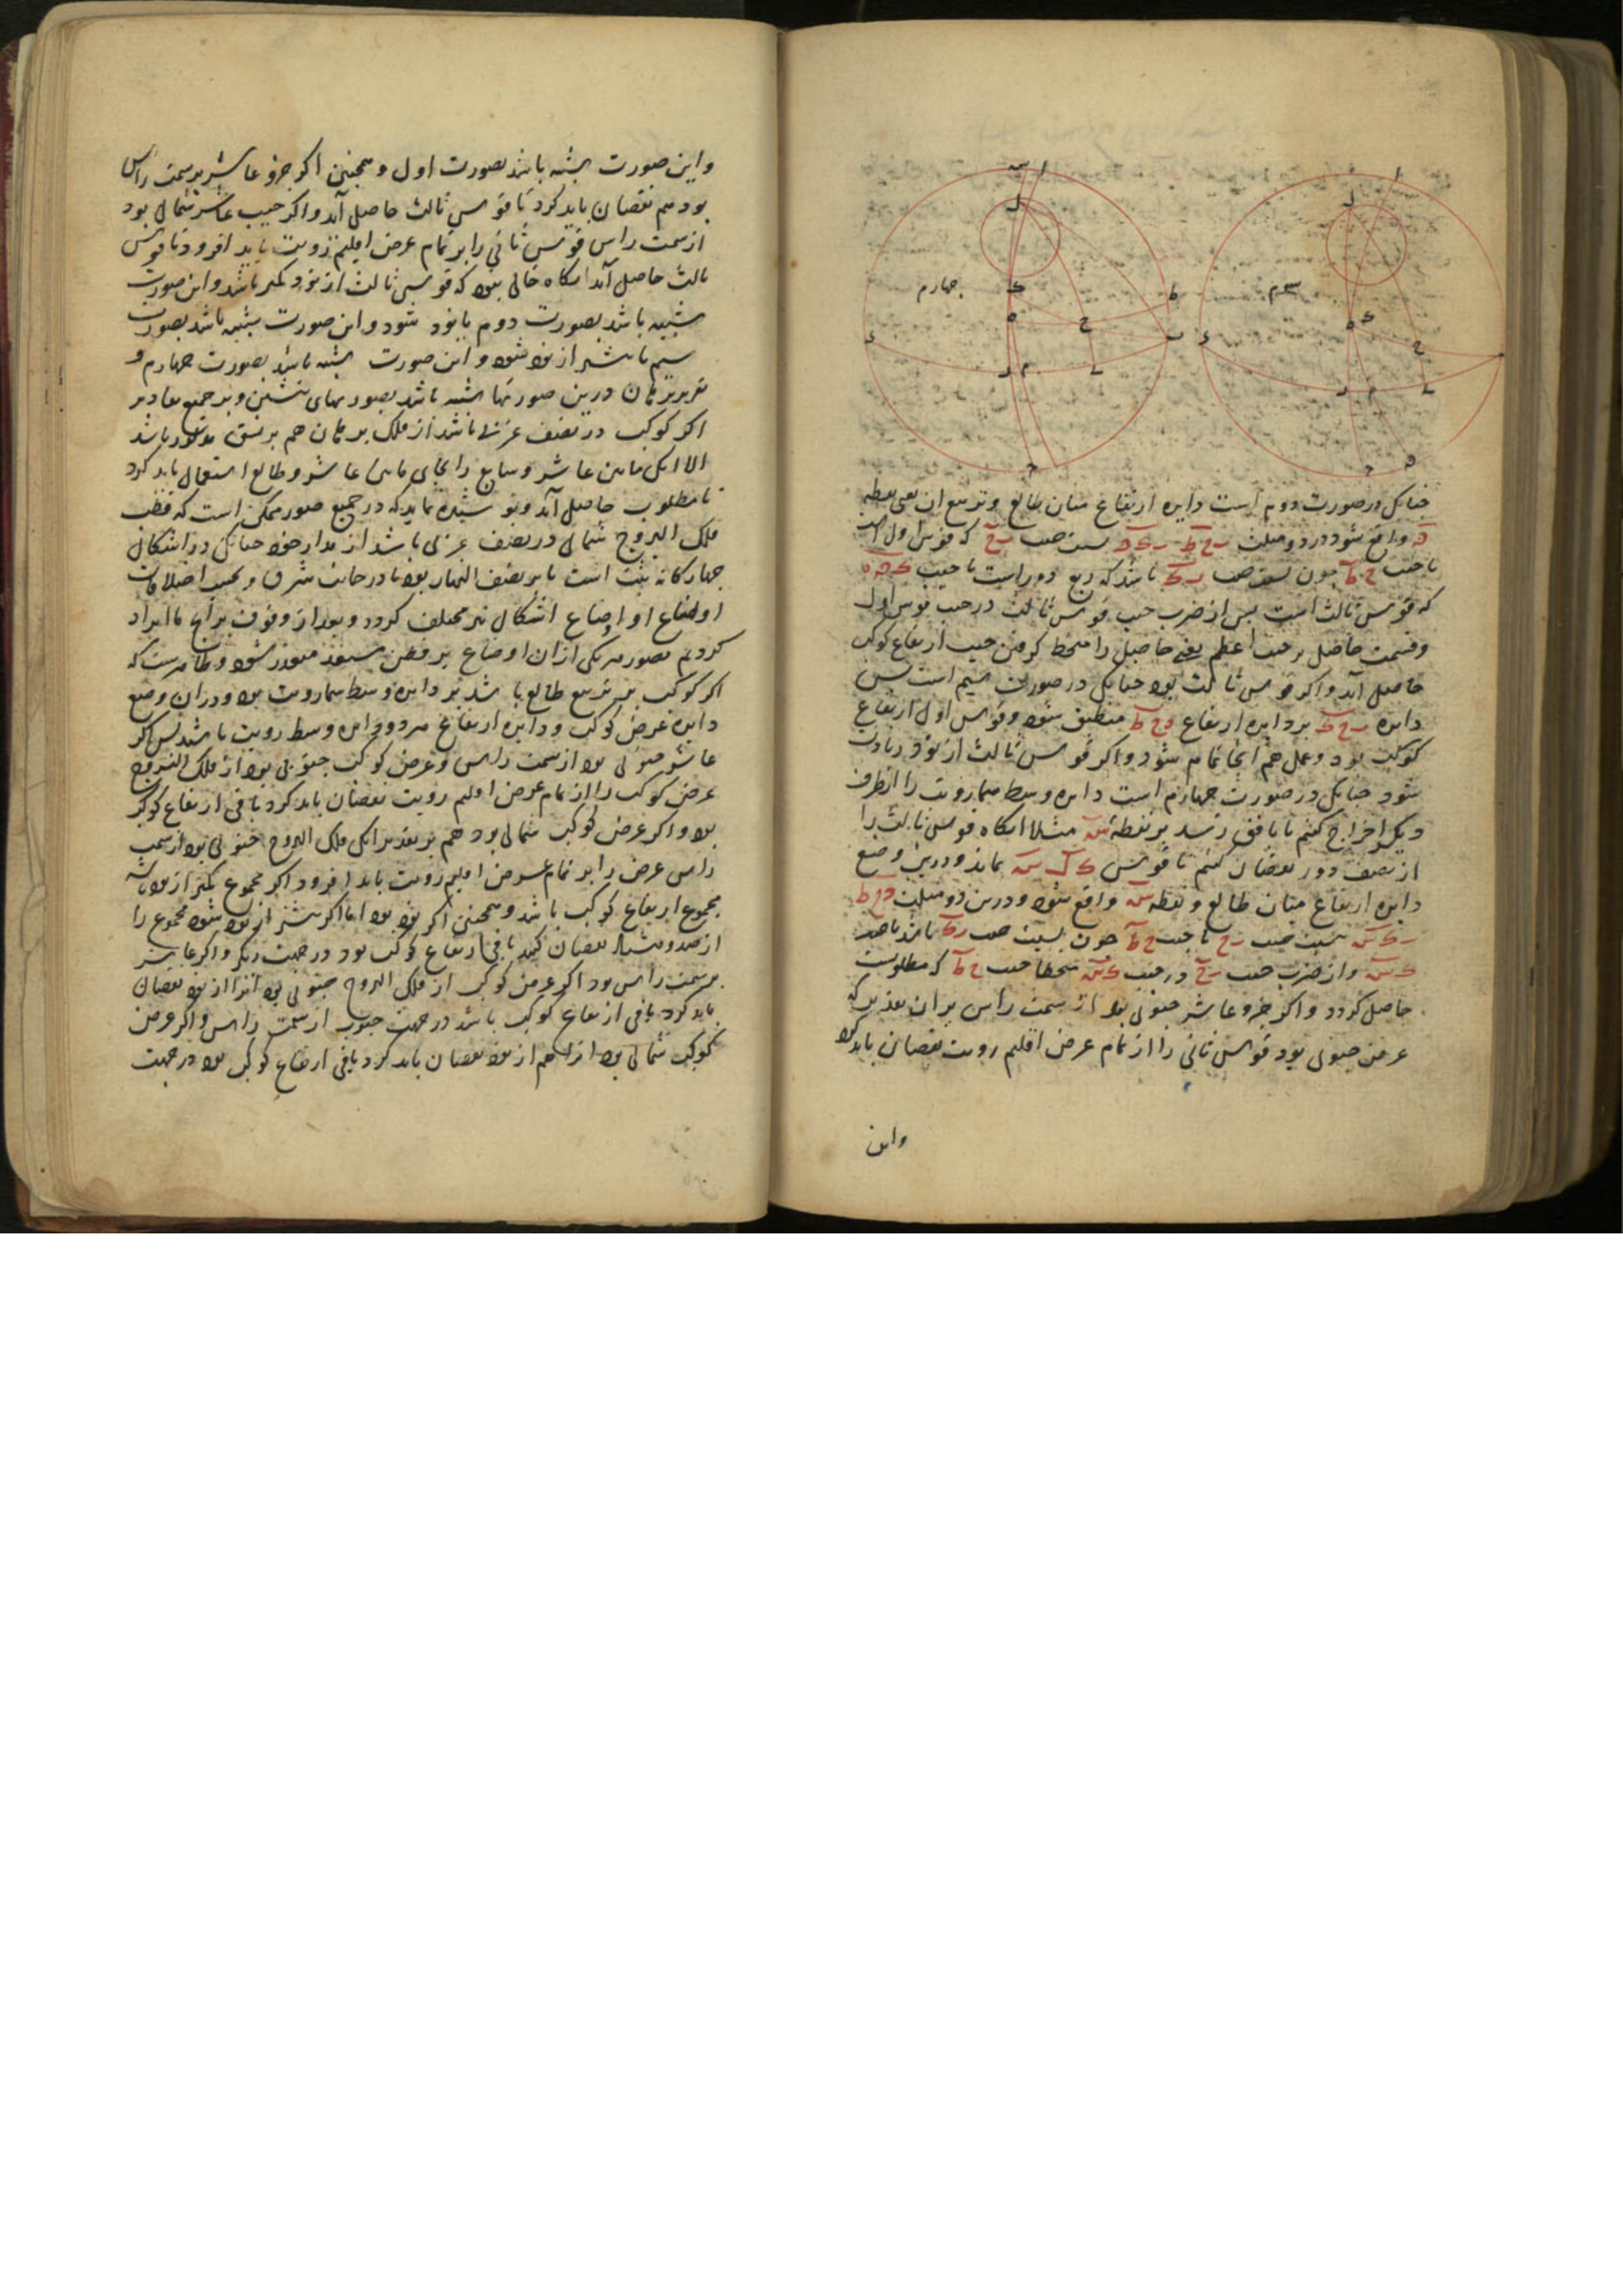 چهارم
سیم
چنانکه در صورت دوم است دایره ارتفاع میان طالع و تربیع آن یعنی نقطه
واقع شود در دو مثلث که قوس اول است
تا جیب چون نسبت جیب باشد که ربع دور است تا جیب
که قوس ثالث است پس از ضرب جیب قوس ثالث در جیب قوس اول
و قسمت حاصل بر جیب اعظم یعنی حاصل را منحط کرفتن جیب ارتفاع کوکب
حاصل آید و اکر قوس ثالث بود چنانکه در صورت سیم است پس
دایره بر دایره ارتفاع منطبق شود و قوس اول ارتفاع
کوکب بود و عمل هم اینجا تمام شود و اکر قوس ثالث از نود زیادت
شود چنانکه در صورت چهارم است دایره وسط سماء رویت را از طرف
دیکر اخراج کنیم تا بافق رسد بر نقطه س مثلا آنکاه قوس ثالث را
از نصف دور نقصان کنیم تا قوس بماند و درین وضع
دایره ارتفاع میان طالع و نقطه س واقع شود و درین دو مثلث
نسبت جیب تا جیب چون نسبت جیب باشد تا جیب
و از ضرب جیب در جیب منحطا جیب که مطلوبست
حاصل کردد و اکر جزو عاشر جنوبی بود از سمت راس بر آن تقدیر که
عرض جنوبی بود قوس ثانی را از تمام عرض اقلیم رویت نقصان باید کرد
واین
واین صورت شبیه باشد بصورت اول و همچنین اکر جزو عاشر بر سمت راس
بود هم نقصان باید کرد تا قوس ثالث حاصل آید و اکر جیب عاشر شمالی بود
از سمت راس قوس ثانی را بر تمام عرض اقلیم رویت باید افزود تا قوس
ثالث حاصل آید آنکاه خالی نبود که قوس ثالث از نود کمتر باشد و این صورت
شبیه باشد بصورت دوم یا نود شود و این صورت شبیه باشد بصورت
سیم یا بیشتر از نود شود و این صورت شبیه باشد بصورت چهارم و
تقریر برهان درین صورتها شبیه باشد بصورتهای پیشین و بر جمیع تقادیر
اکر کوکب در نصف غربی باشد از فلک برهان هم برین نسق باشد
الا آنکه مابین عاشر و سابع را بجای مابین عاشر و طالع استعمال باید کرد
تا مطلوب حاصل آید و پوشیده نماند که در جمیع صور ممکن است که قطب
فلک البروج شمالی در نصف غربی باشد از مدار خود چنانکه در اشکال
چهارکانه ثبت است یا بر نصف النهار بود یا در جانب شرق و بحسب اختلافات
اوضاع او اوضاع اشکال نیز مختلف کردد و بعد از وقوف بر آنچ ما ایراد
کردیم تصور هر یکی از آن اوضاع بر فطن متعذر نشود و ظاهرست که
اکر کوکب بر تربیع طالع باشد بر دایره وسط سماء رویت بود و در آن وضع
دایره عرض کوکب و دایره ارتفاع هر دو دایره وسط رویت باشد پس اکر
عاشر جنوبی بود از سمت راس و عرض کوکب جنوبی بود از فلک البروج
عرض کوکب را از تمام عرض اقلیم رویت نقصان باید کرد باقی ارتفاع کوکب
بود و اکر عرض کوکب شمالی بود هم بر تقدیر آنکه فلک البروج جنوبی بود از سمت
راس عرض را بر تمام عرض اقلیم رویت باید افزود اکر مجموع کمتر از نود باشد
مجموع ارتفاع کوکب باشد و همچنین اکر نود بود اما اکر بیشتر از نود شود مجموع را
از صد و هشتاد نقصان کنند باقی ارتفاع کوکب بود در جهت دیکر و اکر عاشر
بر سمت راس بود اکر عرض کوکب از فلک البروج جنوبی بود آنرا از نود نقصان
باید کرد باقی ارتفاع کوکب باشد در جهت جنوب از سمت راس و اکر عرض
کوکب شمالی بود آنرا هم از نود نقصان باید کرد باقی ارتفاع کوکب بود در جهت